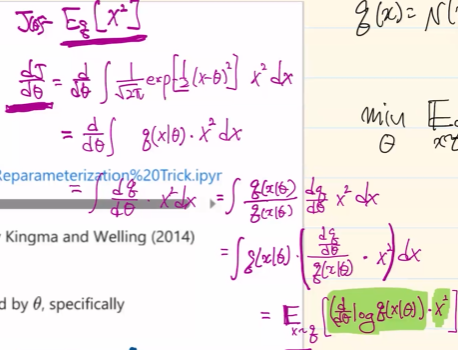 J(θ)= E_q[x²]
q(x)= N(
dJ/dθ = d/dθ ∫ 1/√2π exp[-1/2(x-θ)²] x² dx
= d/dθ ∫ q(x|θ)·x² dx
min_θ E_x~q
Reparameterization%20Trick.ipyr
= ∫ dq/dθ · x² dx = ∫ q(x|θ)/q(x|θ) dq/dθ x² dx
Kingma and Welling (2014)
= ∫ q(x|θ)·( dq/dθ / q(x|θ) · x² ) dx
d by θ, specifically
= E_x~q [ (d/dθ log q(x|θ)) · x² ]